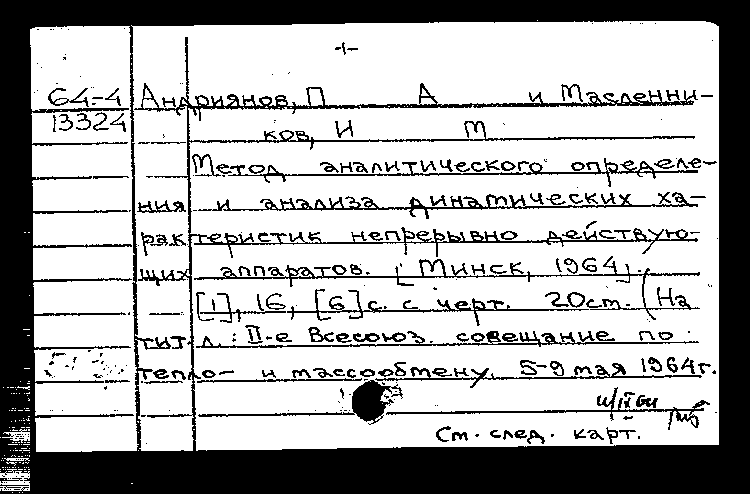 -1-
64-4 Андриянов, П А и Масленни-
13324 ков, И М
Метод аналитического определе-
ния и анализа динамических ха-
рактеристик непрерывно действую-
щих аппаратов. [Минск, 1964].
[1], 16, [6] с. с черт. 20 см. (На
тит. л.: II-е Всесоюз. совещание по
тепло- и массообмену. 5-9 мая 1964 г.
См. след. карт.